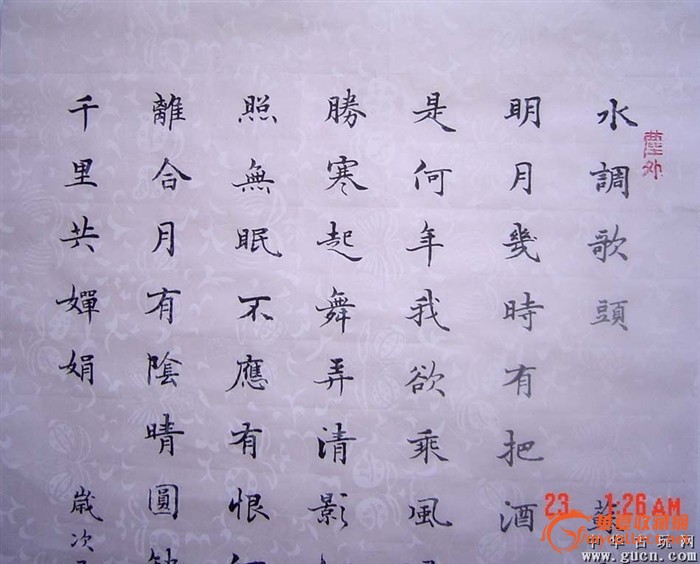 水調歌頭 蘇
明月幾時有把酒
是何年我欲乘風
勝寒起舞弄清影
照無眠不應有恨
離合月有陰晴圓缺
千里共嬋娟 歲次
塵外
23 1:26 AM
中华古玩网
www.gucn.com